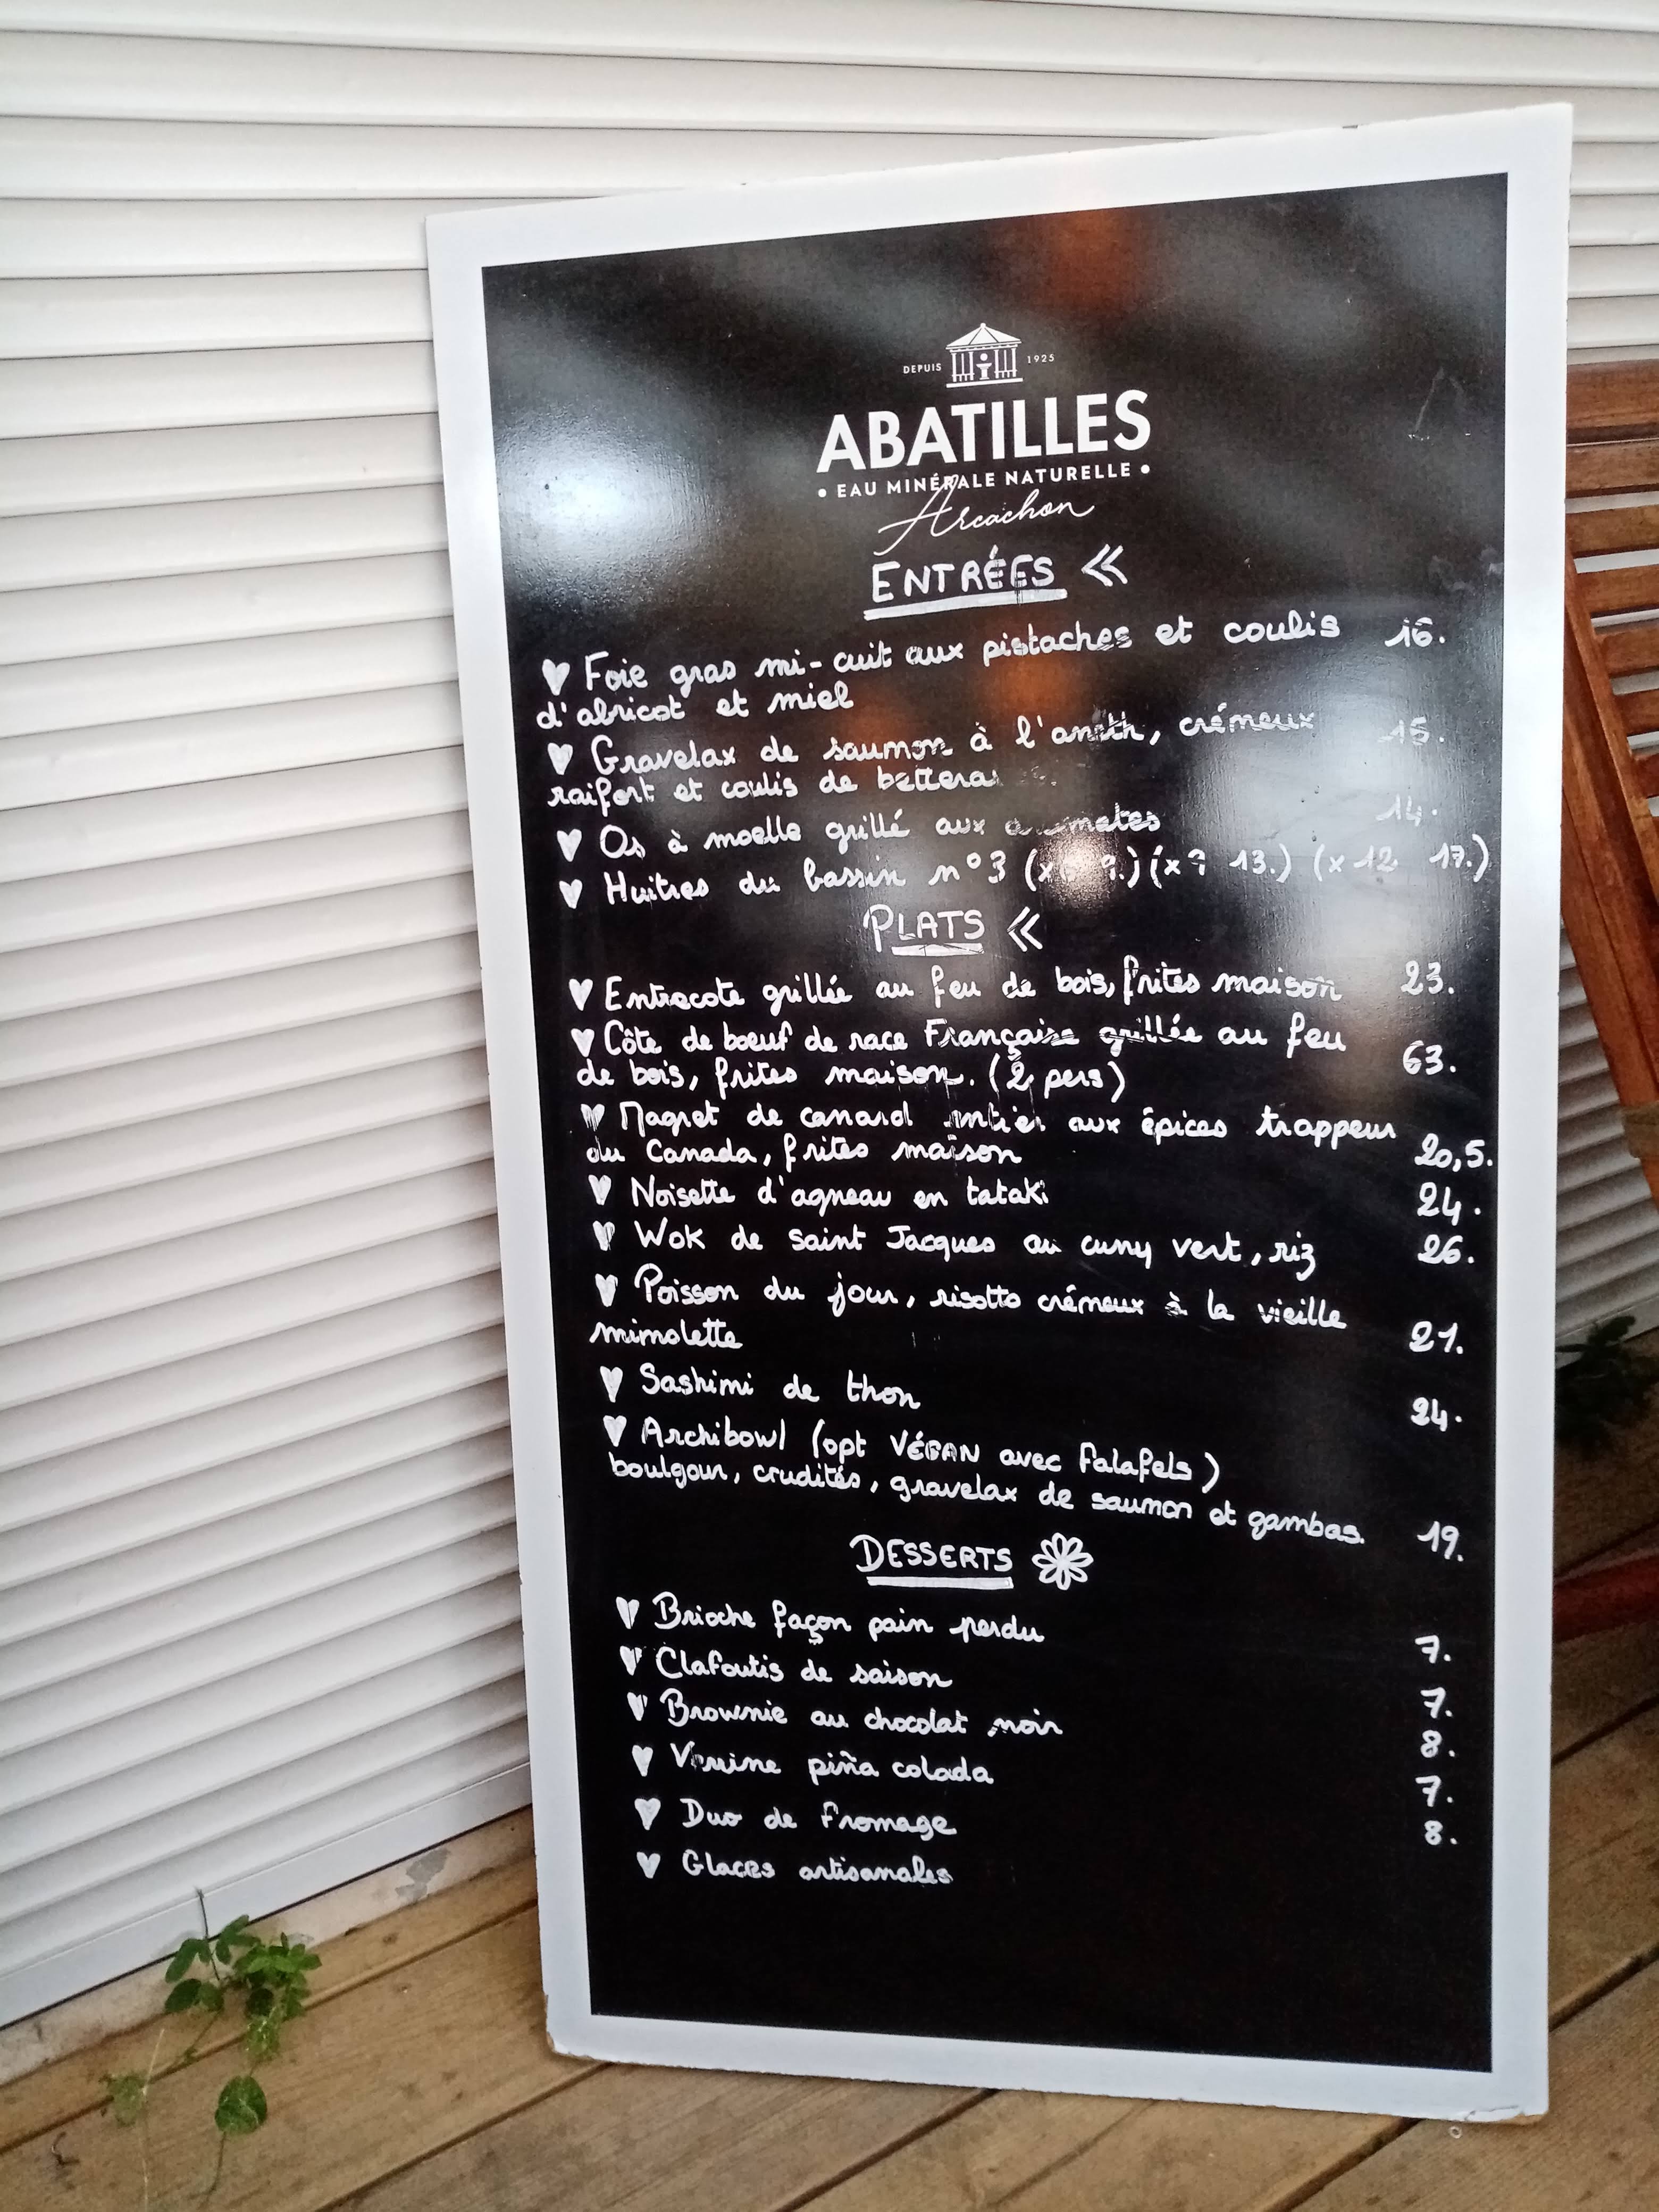 DEPUIS 1925
ABATILLES
• EAU MINÉRALE NATURELLE •
Arcachon
ENTRÉES
Foie gras mi-cuit aux pistaches et coulis 16.
d'abricot et miel
Gravelax de saumon à l'aneth, crémeux 15.
raifort et coulis de
Os à moelle grillé aux 14.
Huitres du bassin n°3 13.) (x12 17.)
PLATS
Entrecote grillée au feu de bois, frites maison 23.
Côte de boeuf de race Française grillée au feu
de bois, frites maison. (2 pers) 63.
Magret de canard entier aux épices trappeur
du Canada, frites maison 20,5.
Noisette d'agneau en tataki 24.
Wok de saint Jacques au curry vert, riz 26.
Poisson du jour, risotto crémeux à la vieille
mimolette 21.
Sashimi de thon 24.
Archibowl (opt VÉGAN avec falafels)
boulgour, crudités, gravelax de saumon et gambas. 19.
DESSERTS
Brioche façon pain perdu 7.
Clafoutis de saison 7.
Brownie au chocolat noir 8.
Verrine piña colada 7.
Duo de fromage 8.
Glaces artisanales